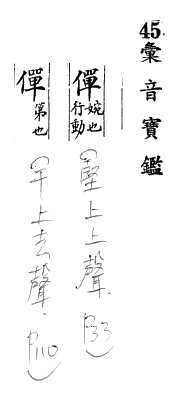 45.彙音寶鑑
僤 婉也
行動
(堅上上聲 P33)
僤 第也
(干上去聲 P110)